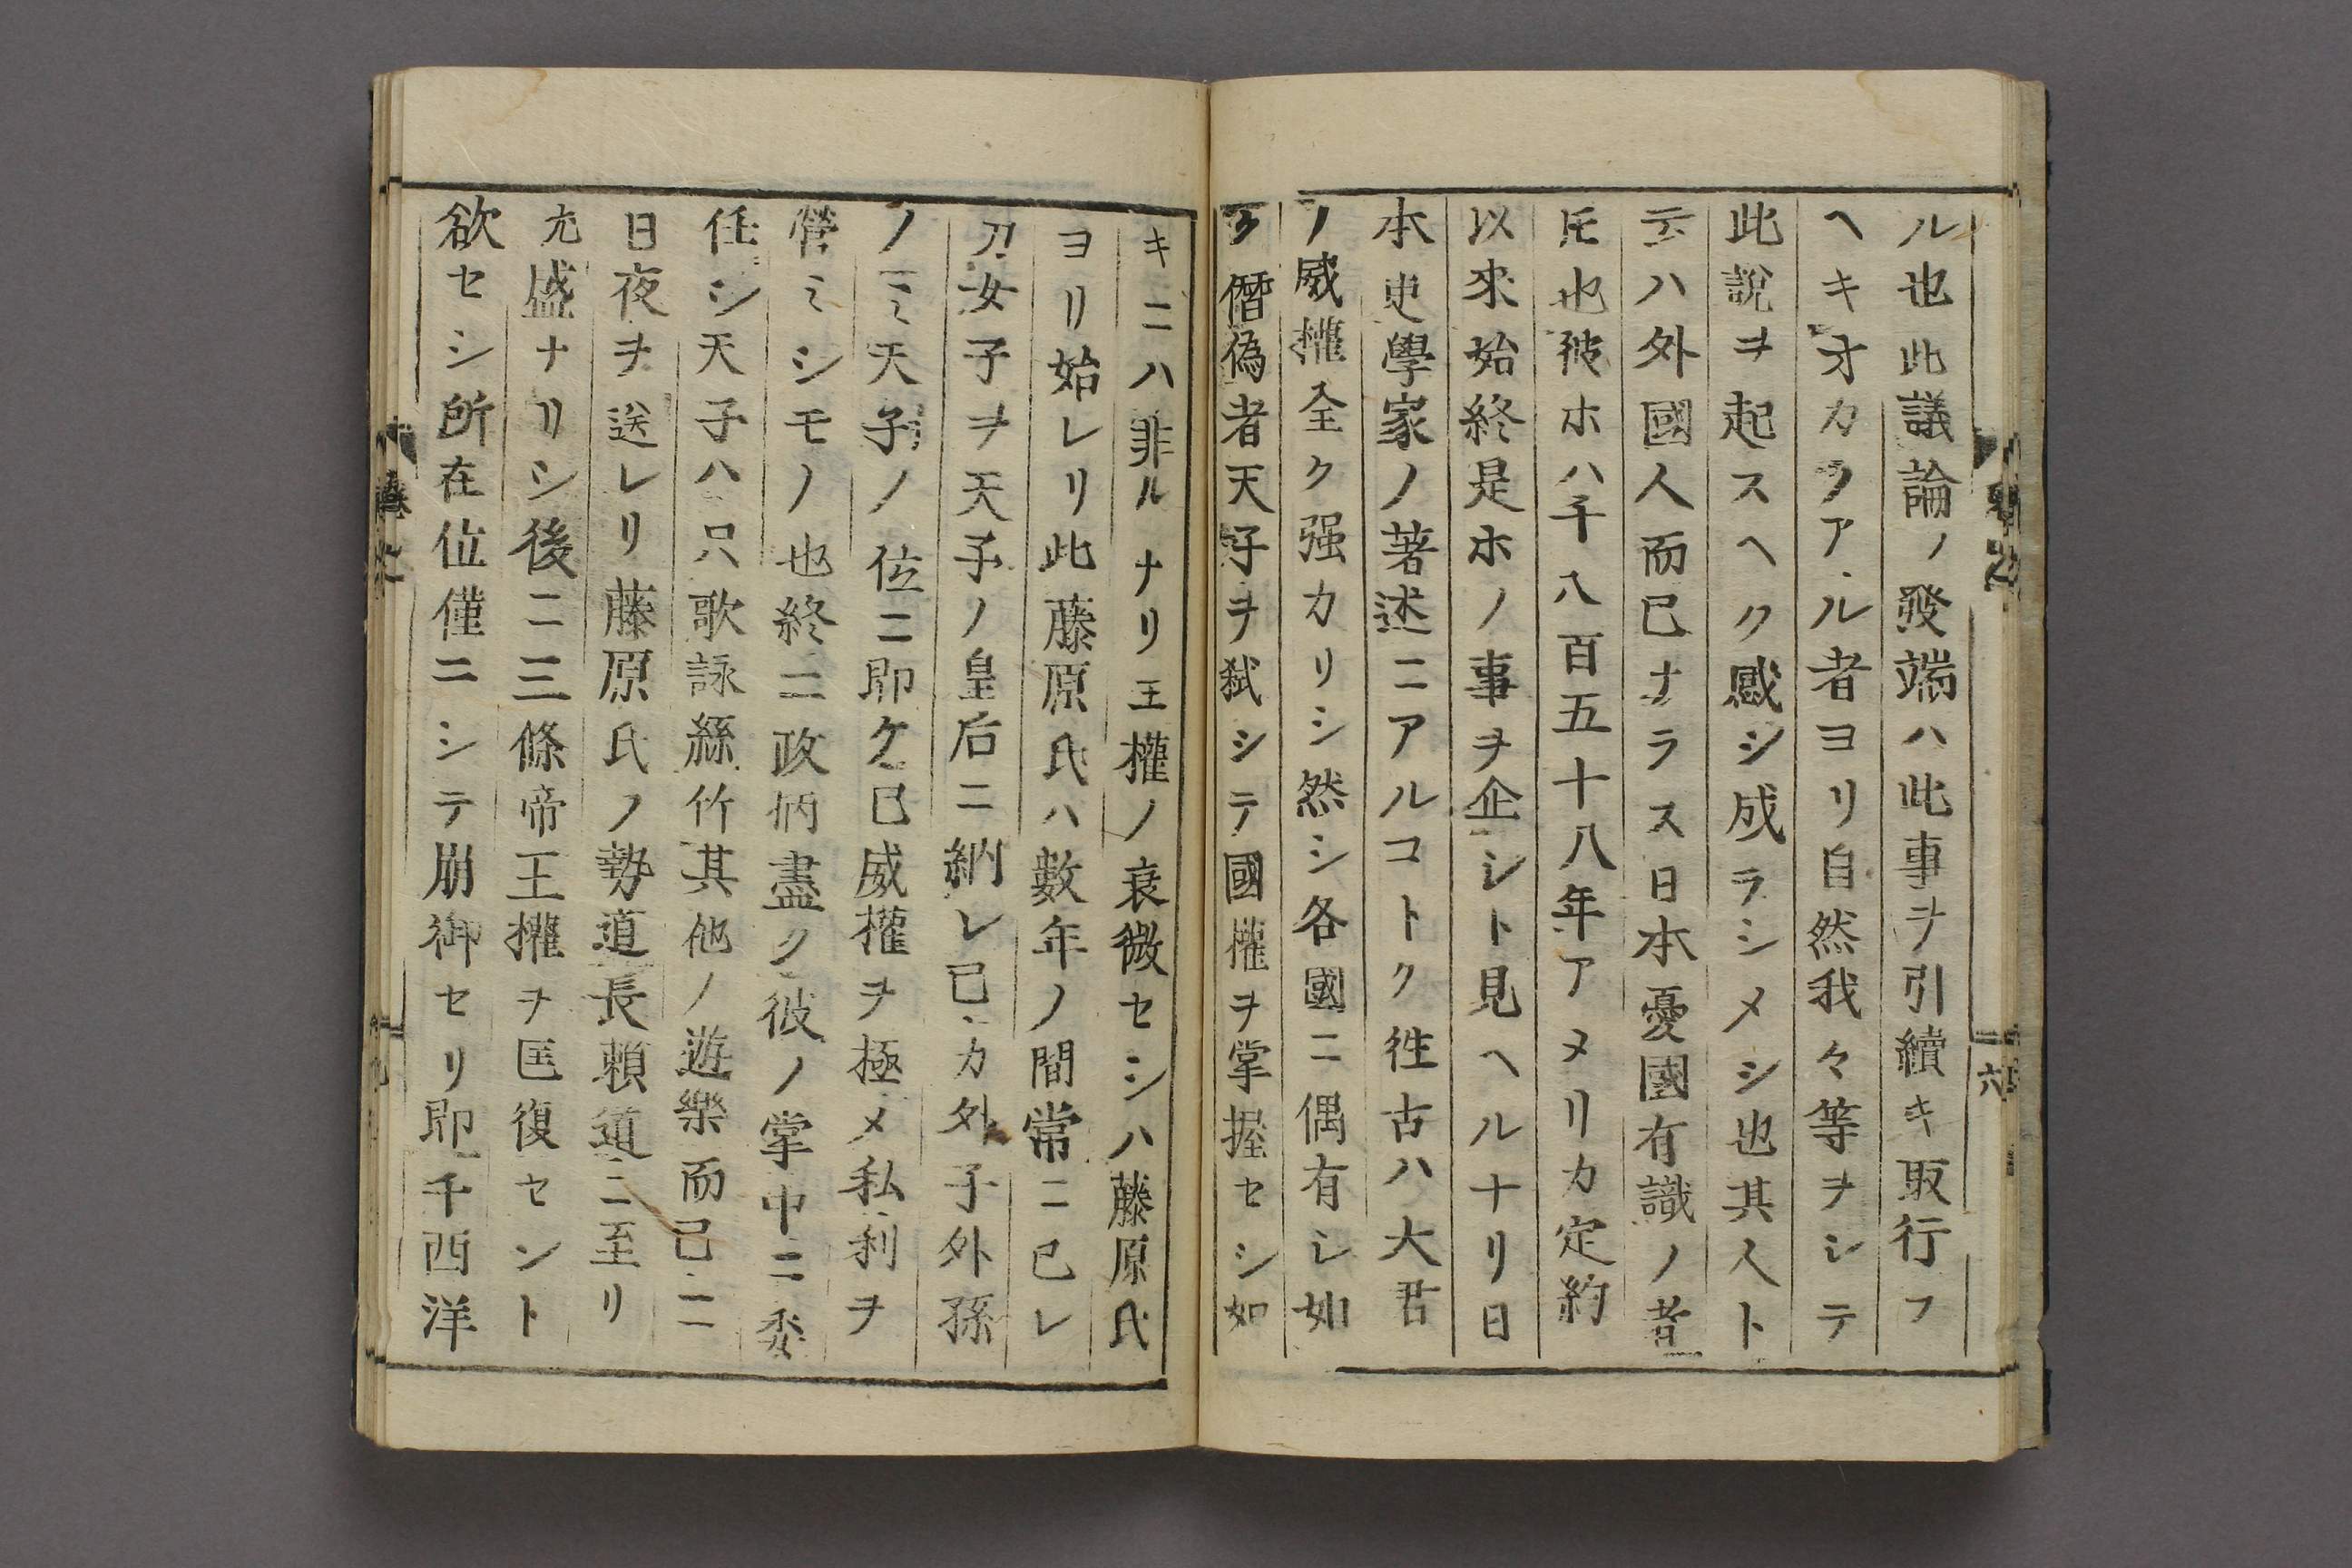 ル也此議論ノ發端ハ此事ヲ引續キ取行フ
ヘキオカラアル者ヨリ自然我々等ヲシテ
此說ヲ起スヘク感シ成ラシメシ也其人ト
云ハ外國人而已ナラス日本憂國有識ノ者
𪜈也彼ホハ千八百五十八年アメリカ定約
以來始終是ホノ事ヲ企シト見ヘルナリ日
本史學家ノ著述ニアルコトク徃古ハ大君
ノ威權全ク强カリシ然シ各國ニ偶有レ如
ク僭偽者天子ヲ弑シテ國權ヲ掌握セシ如
六
キニハ非ルナリ王權ノ衰微セシハ藤原氏
ヨリ始レリ此藤原氏ハ數年ノ間常ニ已レ
刀女子ヲ天子ノ皇后ニ納レ已カ外子外孫
ノミ天子ノ位ニ即ケ已威權ヲ極メ私利ヲ
營ミシモノ也終ニ政柄盡ク彼ノ掌中ニ委
任シ天子ハ只歌詠絲竹其他ノ遊樂而已ニ
日夜ヲ送レリ藤原氏ノ勢道長賴道ニ至リ
尤盛ナリシ後ニ三條帝王權ヲ匡復セント
欲セシ所在位僅ニシテ崩御セリ即千西洋